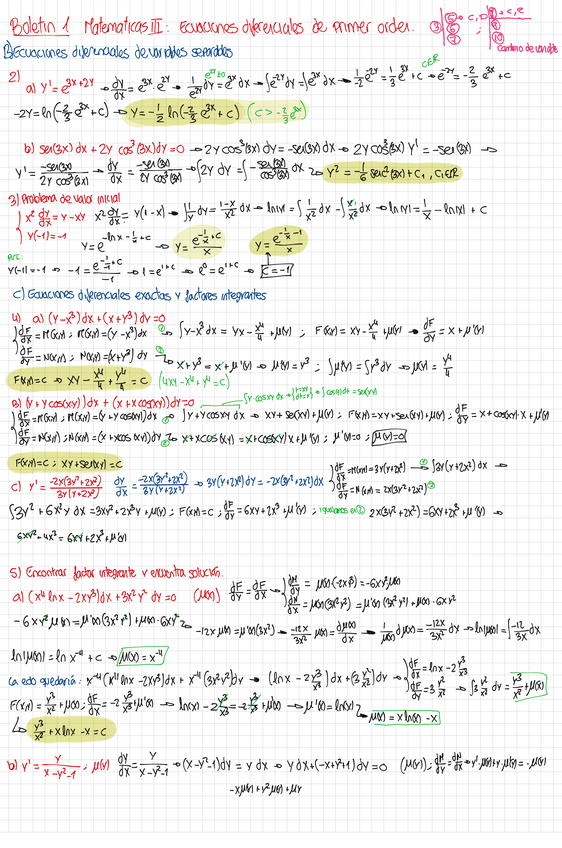 Boletín 1 Matemáticas III: Ecuaciones diferenciales de primer orden.
cambio de variable
B) Ecuaciones diferenciales de variables separables
2)
a) y' = e^{3x+2y} → dy/dx = e^{3x}·e^{2y} → 1/e^{2y} dy = e^{3x} dx → ∫e^{-2y} dy = ∫e^{3x} dx → 1/-2 e^{-2y} = 1/3 e^{3x} + c → e^{-2y} = -2/3 e^{3x} + c
-2y = ln(-2/3 e^{3x} + c) → y = -1/2 ln(-2/3 e^{3x} + c) (c > -2/3 e^{3x})
b) sen(3x) dx + 2y cos³(3x) dy = 0 → 2y cos³(3x) dy = -sen(3x) dx → 2y cos³(3x) y' = -sen(3x) →
y' = -sen(3x)/2y cos³(3x) → dy/dx = -sen(3x)/2y cos³(3x) → ∫2y dy = ∫-sen(3x)/cos³(3x) dx → y² = -1/6 sec²(3x) + c₁, c₁∈ℝ
3) Problema de valor inicial
x² dy/dx = y - xy x² dy/dx = y(1-x) → ∫1/y dy = 1-x/x² dx → ln|y| = ∫1/x² dx - ∫x/x² dx → ln|y| = 1/x - ln|x| + c
y(-1) = -1
y = e^{-ln x - 1/x + c} → y = e^{-1/x + c}/x y = e^{-1/x - 1}/x
y(-1) = -1 → -1 = e^{-1/-1 + c}/-1 → 1 = e^{1+c} → e⁰ = e^{1+c} → c = -1
C) Ecuaciones diferenciales exactas y factores integrantes
4) a) (y-x³) dx + (x+y³) dy = 0
dF/dx = M(x,y); M(x,y) = (y-x³) dx → ∫y-x³ dx = yx - x⁴/4 + μ(y); F(x,y) = xy - x⁴/4 + μ(y) → dF/dy = x + μ'(y)
dF/dy = N(x,y); N(x,y) = (x+y³) dy → x + y³ = x + μ'(y) → μ'(y) = y³; ∫μ(y) = ∫y³ dy → μ(y) = y⁴/4
F(x,y) = c → xy - x⁴/4 + y⁴/4 = c (4xy - x⁴ + y⁴ = c)
B) (y + y cos(xy)) dx + (x + x cos(xy)) dy = 0
dF/dx = M(x,y); M(x,y) = (y + y cos(xy)) dx → ∫y + y cos xy dx → xy + sen(xy) + μ(y); F(x,y) = xy + sen(xy) + μ(y); dF/dy = x + cos(xy)·x + μ'(y)
dF/dy = N(x,y); N(x,y) = (x + x cos(xy)) dy → x + x cos(xy) = x + cos(xy) x + μ'(y); μ'(y) = 0; μ(y) = 0
F(x,y) = c; xy + sen(xy) = c
c) y' = -2x(3y²+2x²)/3y(y+2x²) dy/dx = -2x(3y²+2x²)/3y(y+2x²) → 3y(y+2x²) dy = -2x(3y²+2x²) dx dF/dx = M(x,y) = 3y(y+2x²) → ∫3y(y+2x²) dx →
dF/dy = N(x,y) = 2x(3y²+2x²)
∫3y² + 6x²y dx = 3xy² + 2x³y + μ(y); F(x,y) = c; dF/dy = 6xy + 2x³ + μ'(y); igualamos en ② 2x(3y² + 2x²) = 6xy + 2x³ + μ'(y) →
6xy² + 4x² = 6xy + 2x³ + μ'(y)
5) Encontrar factor integrante y encuentra solución.
a) (x⁴ ln x - 2xy³) dx + 3x²y² dy = 0 (μ(x)) dF/dy = dF/dx → dM/dy = μ(x)·(-2xy³) = -6xy² μ(x)
dN/dx = μ(x)(3x²y²) = μ'(x)(3x²y²) + μ(x)·6xy²
-6xy² μ(x) = μ'(x)(3x²y²) + μ(x)·6xy² → -12x μ(x) = μ'(x)(3x²) → -12x/3x² μ(x) = dμ(x)/dx → 1/μ(x) dμ(x) = -12x/3x² dx → ln|μ(x)| = ∫-12/3x dx
ln|μ(x)| = ln x⁻⁴ + c → μ(x) = x⁻⁴
La edo quedaría: x⁻⁴(x⁴ ln x - 2xy³) dx + x⁻⁴(3x²y²) dy → (ln x - 2 y³/x³) dx + (3 y²/x²) dy → dF/dx = ln x - 2 y³/x³
dF/dy = 3 y²/x² → ∫3 y²/x² dy = y³/x² + μ(x)
F(x,y) = y³/x² + μ(x); dF/dx = -2 y³/x³ + μ'(x) → ln(x) - 2 y³/x³ = -2 y³/x³ + μ'(x) → μ'(x) = ln(x) → μ(x) = x ln(x) - x
y³/x² + x ln x - x = c
b) y' = y/x-y²-1; μ(y) dy/dx = y/x-y²-1 → (x-y²-1) dy = y dx → y dx + (-x+y²+1) dy = 0 (μ(y)); dM/dy = dN/dx → y'·μ(y) + y·μ'(y) = -μ(y)
-xμ(y) + y²μ(y) + μy